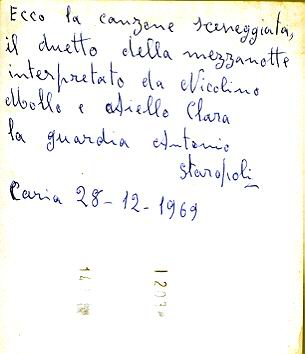 Ecco la canzone sceneggiata,
il duetto della mezzanotte
interpretato da Nicolino
Mollo e Aiello Clara
la guardia Antonio
Staropoli
Caria 28-12-1969